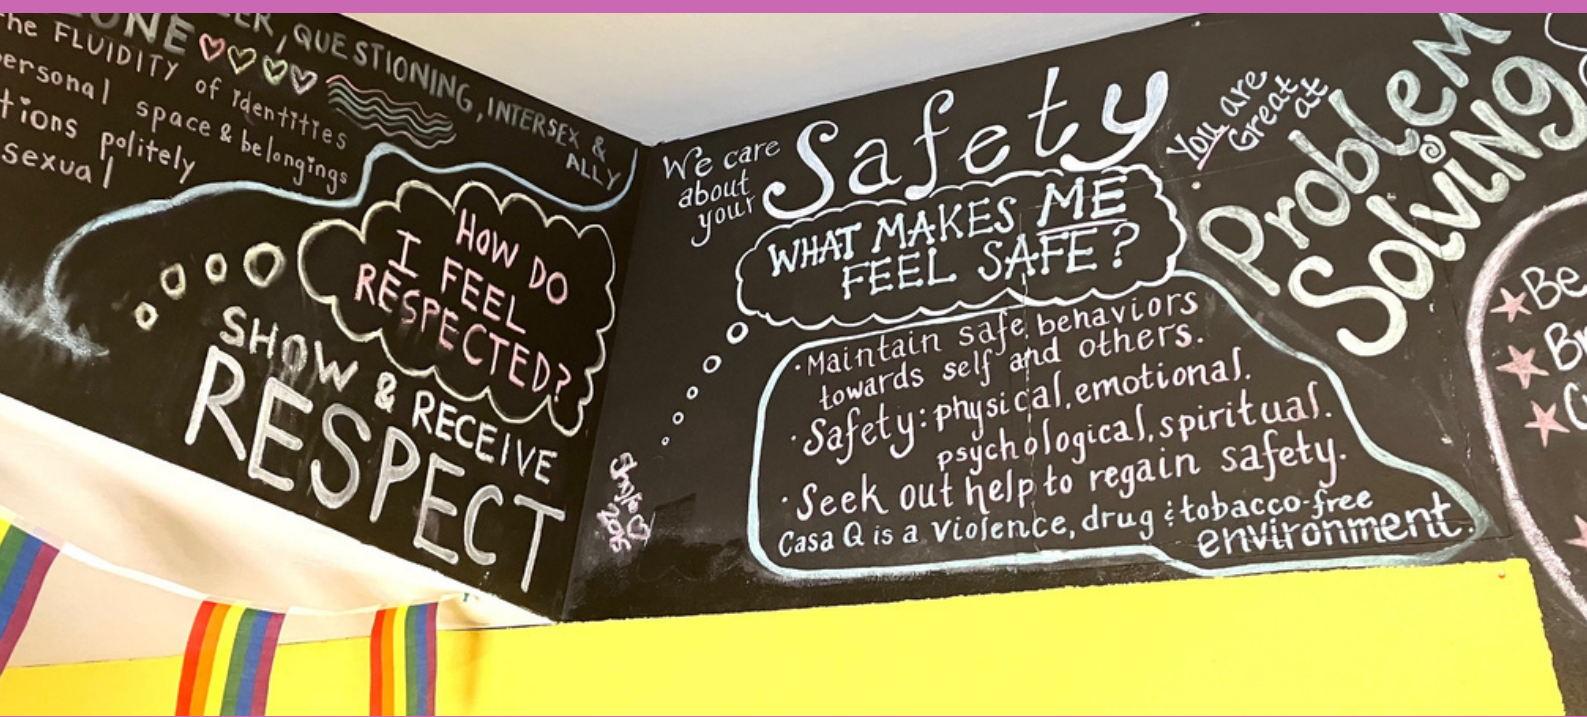 QUESTIONING, INTERSEX &
ALLY
the FLUIDITY of identities
personal space & belongings
politely
sexual
HOW DO
I FEEL
RESPECTED?
SHOW & RECEIVE
RESPECT
We care
about
your
Safety
WHAT MAKES ME
FEEL SAFE?
• Maintain safe behaviors
towards self and others.
• Safety: physical, emotional.
psychological, spiritual.
• Seek out help to regain safety.
Casa Q is a violence, drug & tobacco-free
environment.
You are
Great
at
Problem
Solving
Be